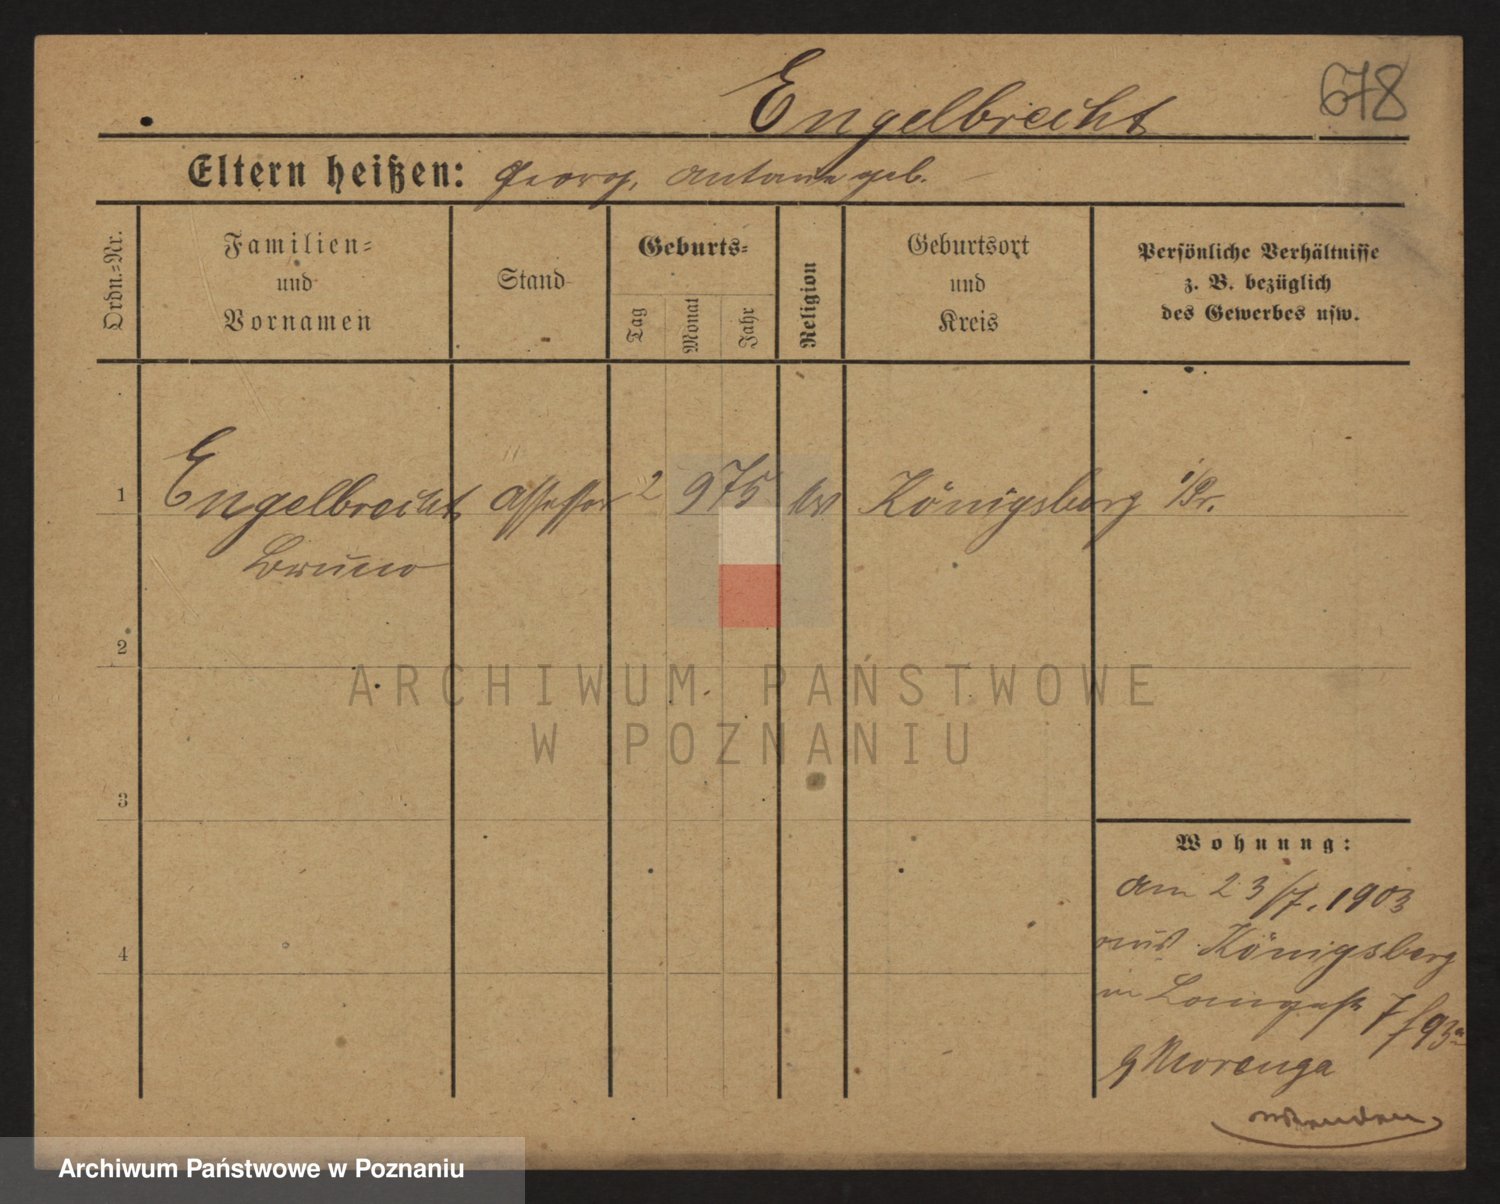 Engelbrecht
678
Eltern heißen: Georg, geb.
Ordn.=Nr.
Familien=
und
Vornamen
Stand
Geburts=
Tag
Monat
Jahr
Religion
Geburtsort
und
Kreis
Persönliche Verhältnisse
z. B. bezüglich
des Gewerbes usw.
1 Engelbrecht Assessor 2 9 75 ev Königsberg i/Pr.
Bruno
2
ARCHIWUM PAŃSTWOWE
W POZNANIU
3
4
Wohnung:
am 23/7. 1903
aus Königsberg
7
Archiwum Państwowe w Poznaniu